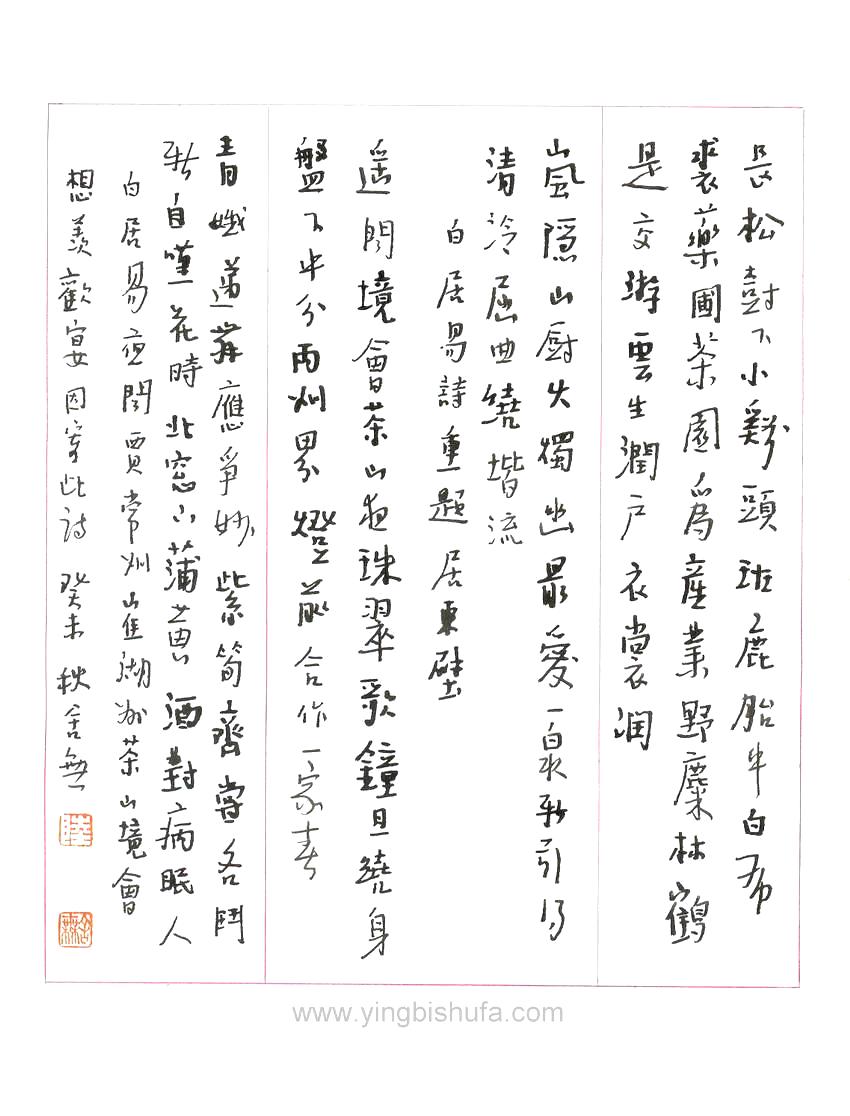 長松樹下小谿頭班鹿胎巾白布
裘藥圃茶園爲產業野麋林鶴
是交遊雲生澗戶衣裳潤
嵐隱山廚火燭幽最愛一泉新引得
清泠屈曲繞堦流
白居易詩重題居東壁
遙聞境會茶山夜珠翠歌鐘俱繞身
盤下中分兩州界燈前合作一家春
青娥遞舞應爭妙紫筍齊嘗各鬥
新自嘆花時北窗下蒲黃酒對病眠人
白居易夜聞賈常州崔湖州茶山境會
想羨歡宴因寄此詩 癸未 秋 舍無
www.yingbishufa.com